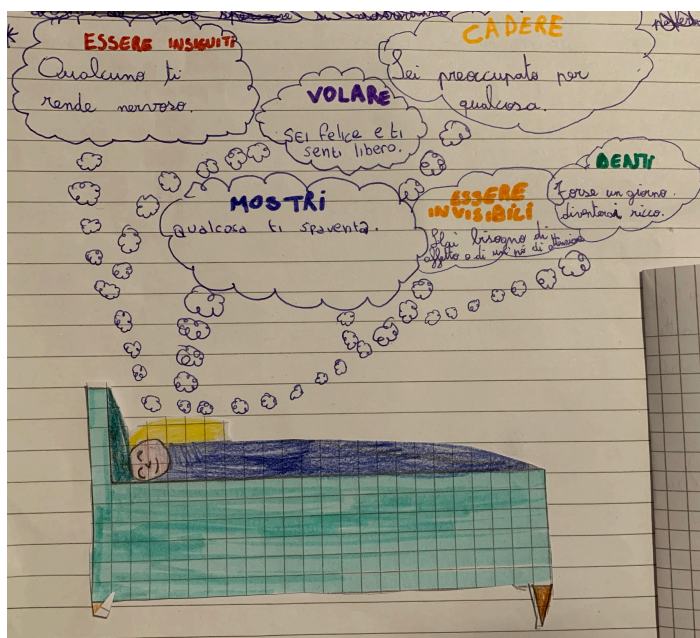 ESSERE INSIGUITI
Qualcuno ti
rende nervoso.
CADERE
Sei preoccupato per
qualcosa.
VOLARE
SEi felice e ti
senti libero.
MOSTRI
qualcosa ti spaventa.
ESSERE
INVISIBILI
Hai bisogno di
affetto e di un pò di attenzione
DENTI
Forse un giorno
diventerai ricco.